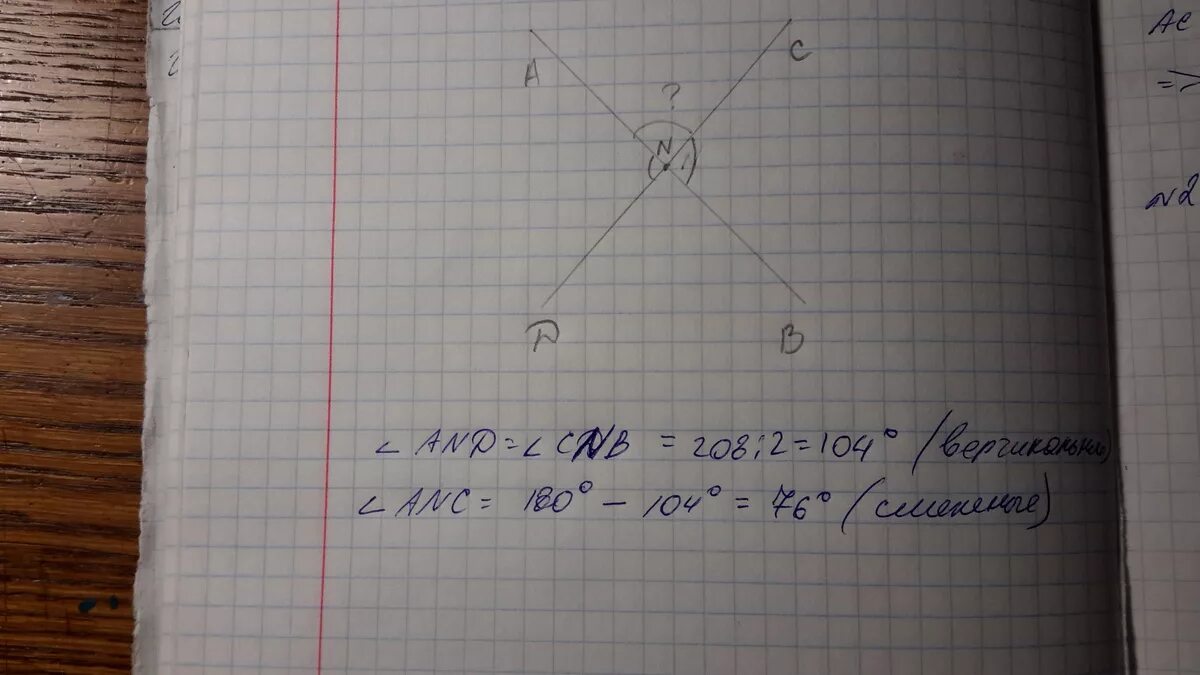 A
C
?
N
D
B
∠ AND = ∠ CNB = 208:2 = 104° (вертикальные)
∠ ANC = 180° – 104° = 76° (смежные)
AC
=>
N2